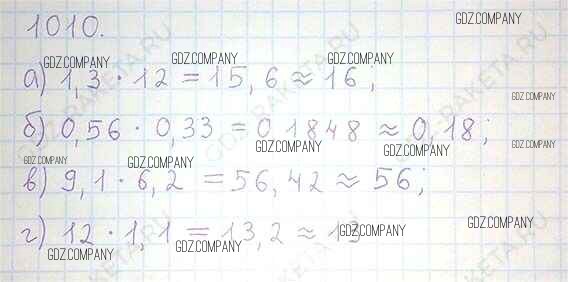 1010.
а) 1,3 · 12 = 15,6 ≈ 16;
б) 0,56 · 0,33 = 0 1848 ≈ 0,18;
в) 9,1 · 6,2 = 56,42 ≈ 56;
г) 12 · 1,1 = 13,2 ≈ 13
GDZ.COMPANY
GDZ.COMPANY
GDZ.COMPANY
GDZ.COMPANY
GDZ.COMPANY
GDZ.COMPANY
GDZ.COMPANY
GDZ.COMPANY
GDZ.COMPANY
GDZ.COMPANY
GDZ.COMPANY
GDZ.COMPANY
GDZ.COMPANY
GDZ.COMPANY